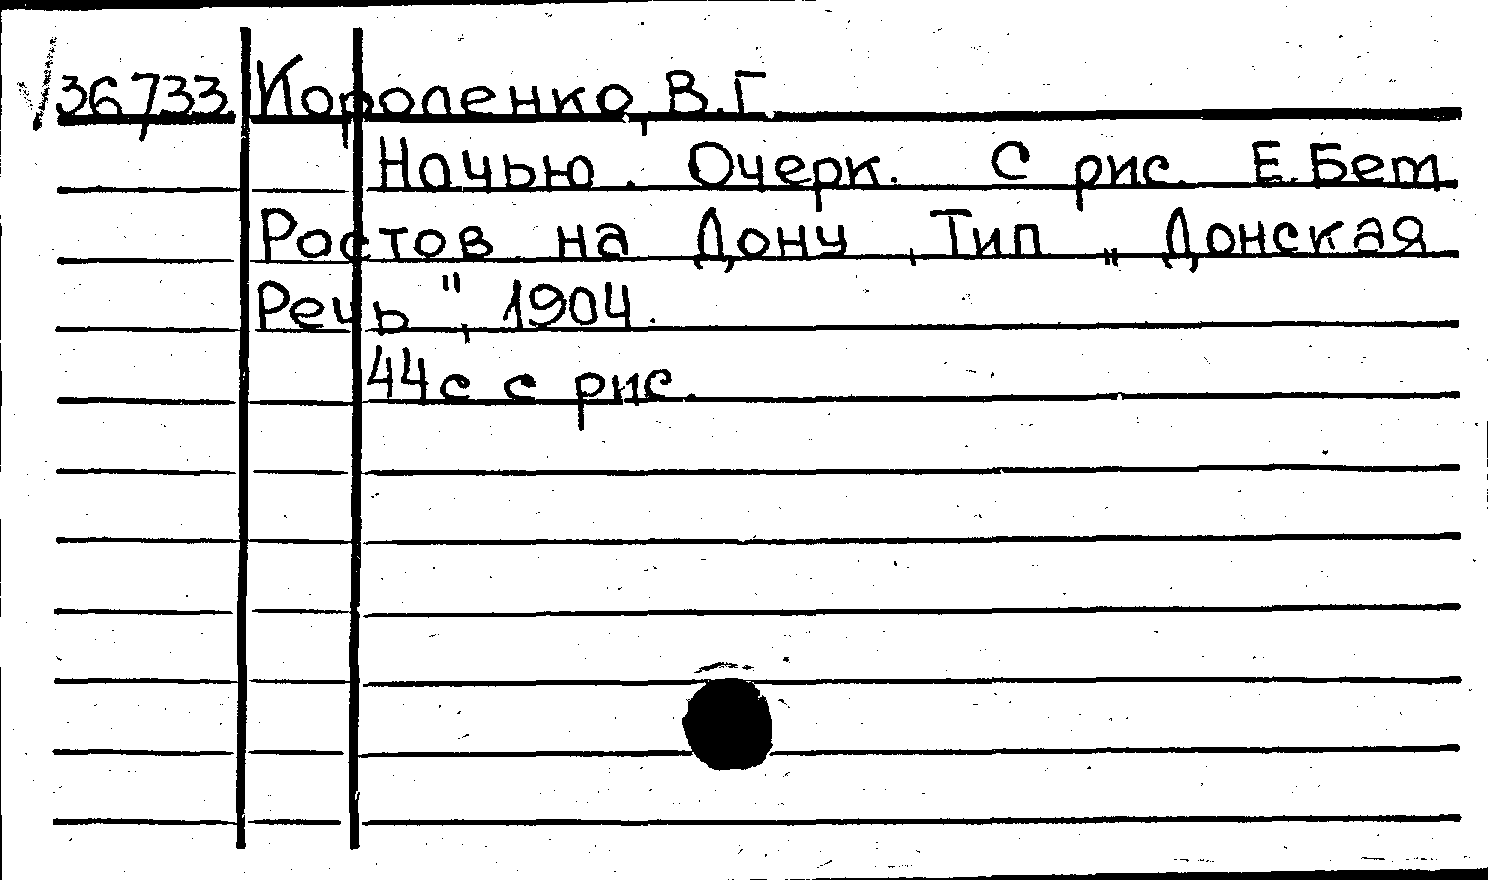 36733 Короленко, В.Г.
Ночью. Очерк. С рис. Е.Бем
Ростов на Дону, Тип. „Донская
Речь", 1904.
44с с рис.